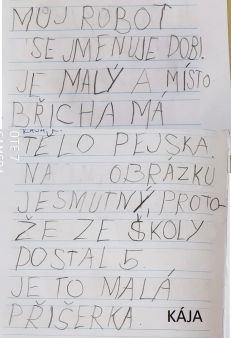 MŮJ ROBOT
SE JMENUJE DOBI.
JE MALÝ A MÍSTO
BŘICHA MÁ
TĚLO PEJSKA.
NA OBRÁZKU
JESMUTNÝ, PROTO-
ŽE ZE ŠKOLY
DOSTAL 5.
JE TO MALÁ
PŘÍŠERKA. KÁJA